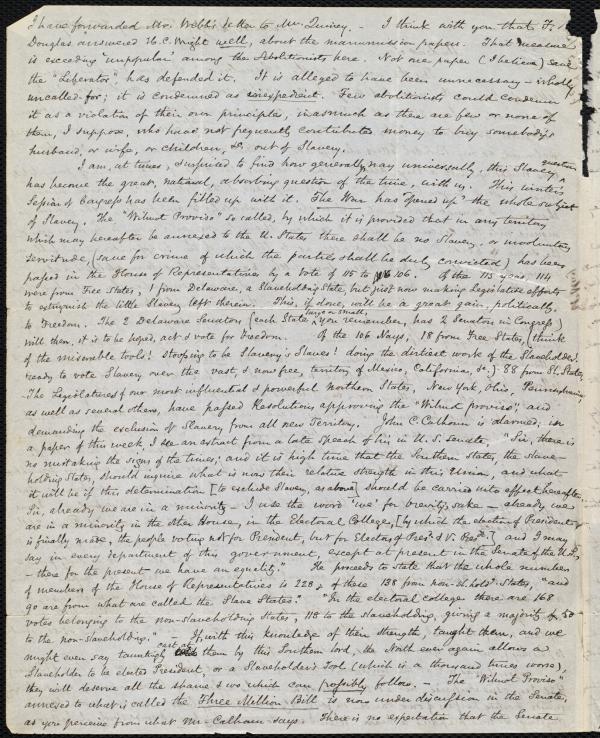 I have forwarded Mr. Webb's letter to Mr. Quincy. - I think with you that F.
Douglas answered H. C. Wright well, about the manumission papers. That measure
is exceeding 'unpopular' among the Abolitionists here. Not one paper (I believe) save
the "Liberator", has defended it. It is alleged to have been unnecessary - wholly
uncalled-for; it is condemned as inexpedient. Few abolitionists could condemn
it as a violation of their own principles, inasmuch as there are few or none of
them, I suppose, who have not frequently contributed money to buy somebody's
husband, or wife, or children, &c. out of Slavery.
I am, at times, surprised to find how generally, nay universally, this Slavery question
has become the great, national, absorbing question of the time, with us. This winter's
Session of Congress has been filled up with it. The War has "opened up" the whole subject
of Slavery. The "Wilmot Proviso" so called, by which it is provided that in any territory
which may hereafter be annexed to the U. States there shall be no Slavery, or involuntary
servitude, (save for crime of which the parties shall be duly convicted) has been
passed in the House of Representatives by a vote of 115 to 106. Of the 115 yeas, 114
were from Free States, 1 from Delaware, a Slaveholding State, but just now making Legislative efforts
to extinguish the little Slavery left therein. This, if done, will be a great gain, politically,
to Freedom. The 2 Delaware Senators (each State, large or small, you remember, has 2 Senators in Congress)
will then, it is to be hoped, act & vote for Freedom. Of the 106 Nays, 18 from Free States, (think
of the miserable tools! stooping to be Slavery's Slaves! doing the dirtiest work of the Slaveholder!
ready to vote Slavery over the vast, & now free, territory of Mexico, California, &c.) 88 from Sl. States.
The Legislatures of our most influential & powerful Northern States, New York, Ohio, Pennsylvania,
as well as several others, have passed Resolutions approving the "Wilmot proviso", and
demanding the exclusion of Slavery from all new Territory. John C. Calhoun is alarmed; in
a paper of this week, I see an extract from a late speech of his in U. S. Senate, "Sir, there is
no mistaking the signs of the times; and it is high time that the Southern States, the slave-
holding States, should inquire what is now their relative strength in this Union, and what
it will be if this determination [to exclude Slavery, as above] should be carried into effect hereafter.
Sir, already we are in a minority - I use the word 'we' for brevity's sake - already we
are in a minority in the other House, in the Electoral College, [by which the election of President
is finally made, the people voting not for President, but for Electors of Prest. & V. Prest.] and I may
say in every department of this government, except at present in the Senate of the U. S.
- there for the present we have an equality." He proceeds to state that the whole number
of members of the House of Representatives is 228, of these 138 from non-Slhold. States, "and
90 are from what are called the Slave States." "In the electoral college there are 168
votes belonging to the non-slaveholding States, 118 to the slaveholding, giving a majority of 50
to the non-slaveholding." If, with this knowledge of their strength, taught them, and we
might even say tauntingly cast at them by this Southern lord, the North ever again allows a
Slaveholder to be elected President, or a Slaveholder's Tool (which is a thousand times worse),
they will deserve all the shame & wo which can possibly follow. - The "Wilmot Proviso"
annexed to what is called the Three Million Bill is now under discussion in the Senate,
as you perceive from what Mr. Calhoun says. There is no expectation that the Senate